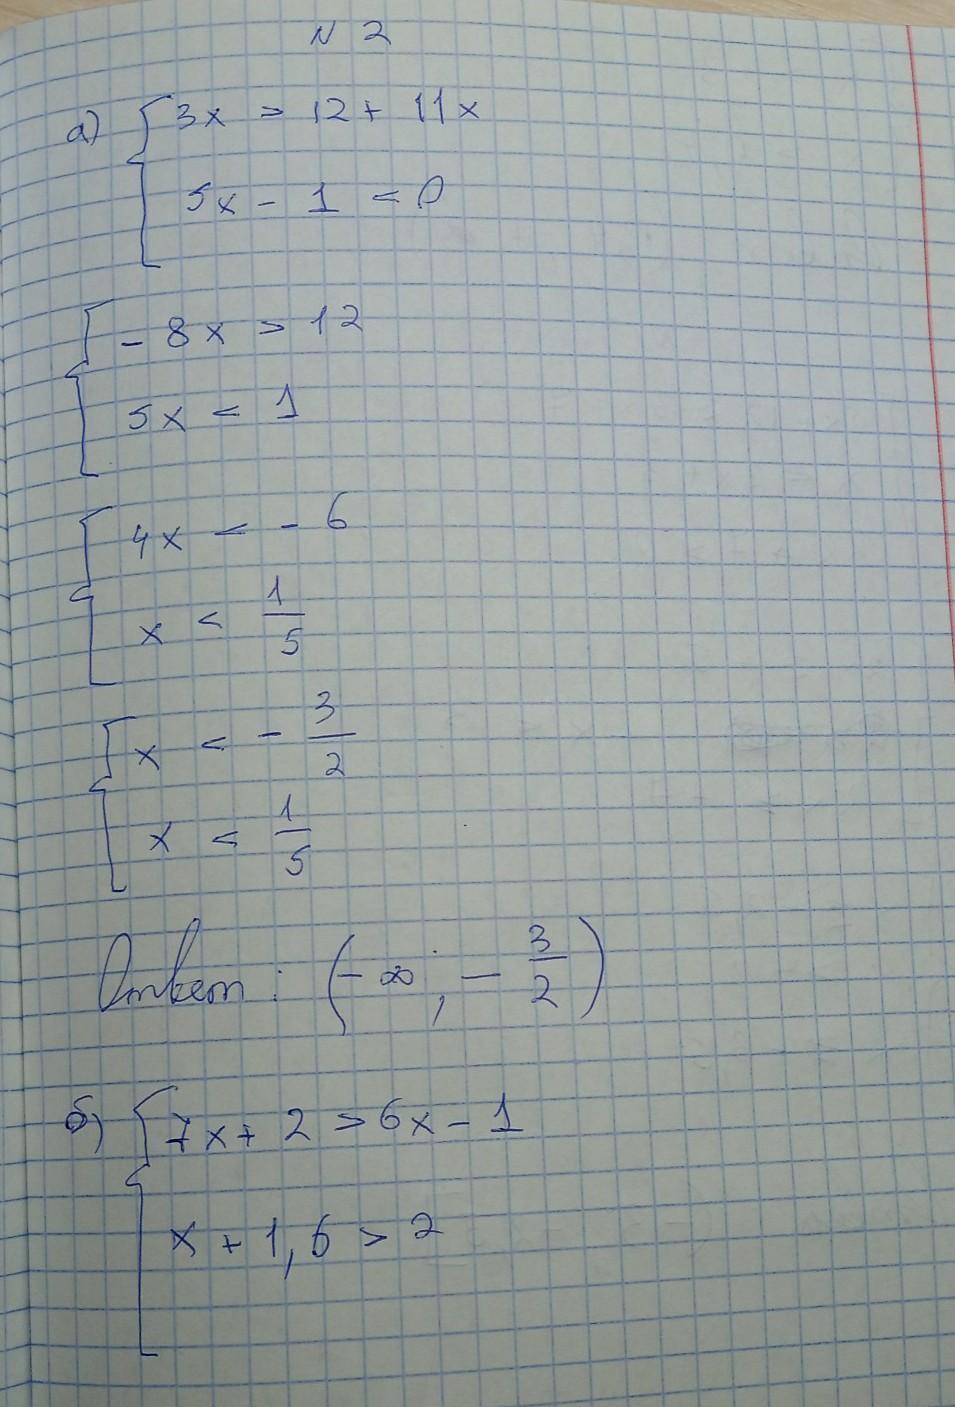 N 2
а) { 3x > 12 + 11x
5x - 1 < 0
{ - 8x > 12
5x < 1
{ 4x < - 6
x < 1/5
{ x < - 3/2
x < 1/5
Ответ: (-∞; - 3/2)
б) { 7x + 2 > 6x - 1
x + 1,6 > 2